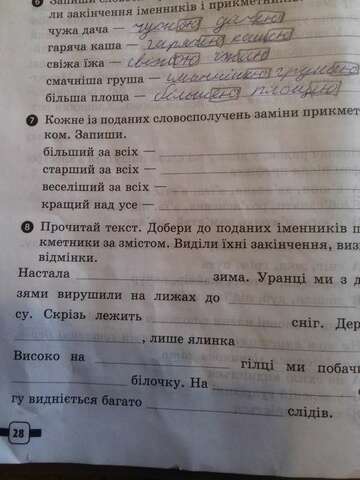 6 Запиши
ли закінчення іменників і прикметників
чужа дача — чужою дачею
гаряча каша — гарячою кашею
свіжа їжа — свіжою їжею
смачніша груша — смачнішою грушею
більша площа — більшою площею
7 Кожне із поданих словосполучень заміни прикмет
ком. Запиши.
більший за всіх —
старший за всіх —
веселіший за всіх —
кращий над усе —
8 Прочитай текст. Добери до поданих іменників п
кметники за змістом. Виділи їхні закінчення, виз
відмінки.
Настала зима. Уранці ми з д
зями вирушили на лижах до
су. Скрізь лежить сніг. Дер
, лише ялинка
Високо на гілці ми побачи
білочку. На
гу видніється багато слідів.
28